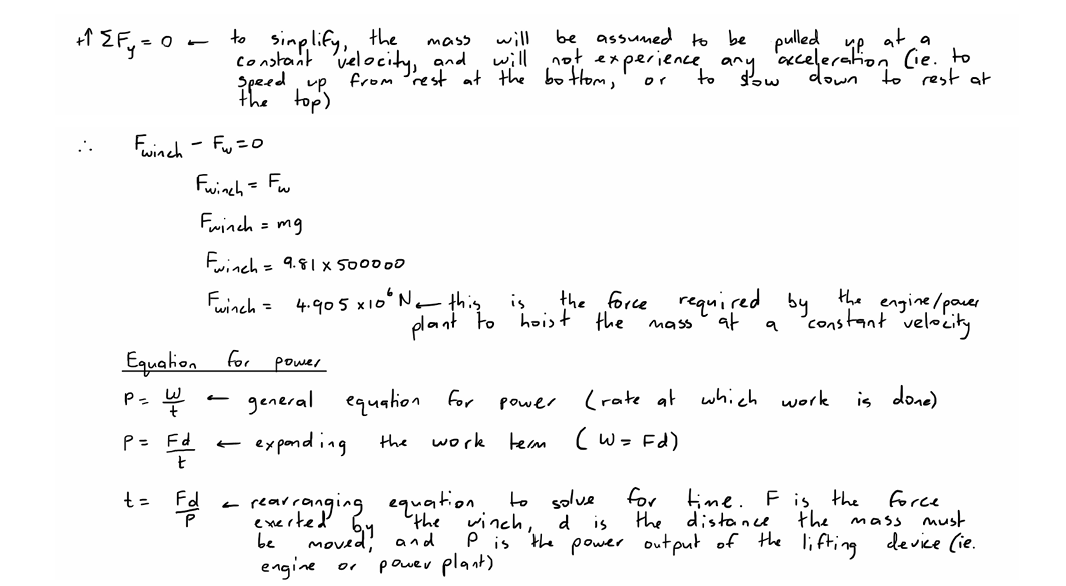 +↑ ΣFy = 0 ← to simplify, the mass will be assumed to be pulled up at a
constant velocity, and will not experience any acceleration (ie. to
speed up from rest at the bottom, or to slow down to rest at
the top)
∴ Fwinch - Fw = 0
Fwinch = Fw
Fwinch = mg
Fwinch = 9.81 x 500000
Fwinch = 4.905 x10⁶ N ← this is the force required by the engine/power
plant to hoist the mass at a constant velocity
Equation for power
P = W/t ← general equation for power (rate at which work is done)
P = Fd/t ← expanding the work term (W = Fd)
t = Fd/P ← rearranging equation to solve for time. F is the force
exerted by the winch, d is the distance the mass must
be moved, and P is the power output of the lifting device (ie.
engine or power plant)